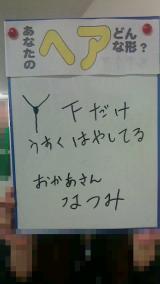 あなたの ヘア どんな形?
下だけ
うすくはやしてる
おかあさん
なつみ